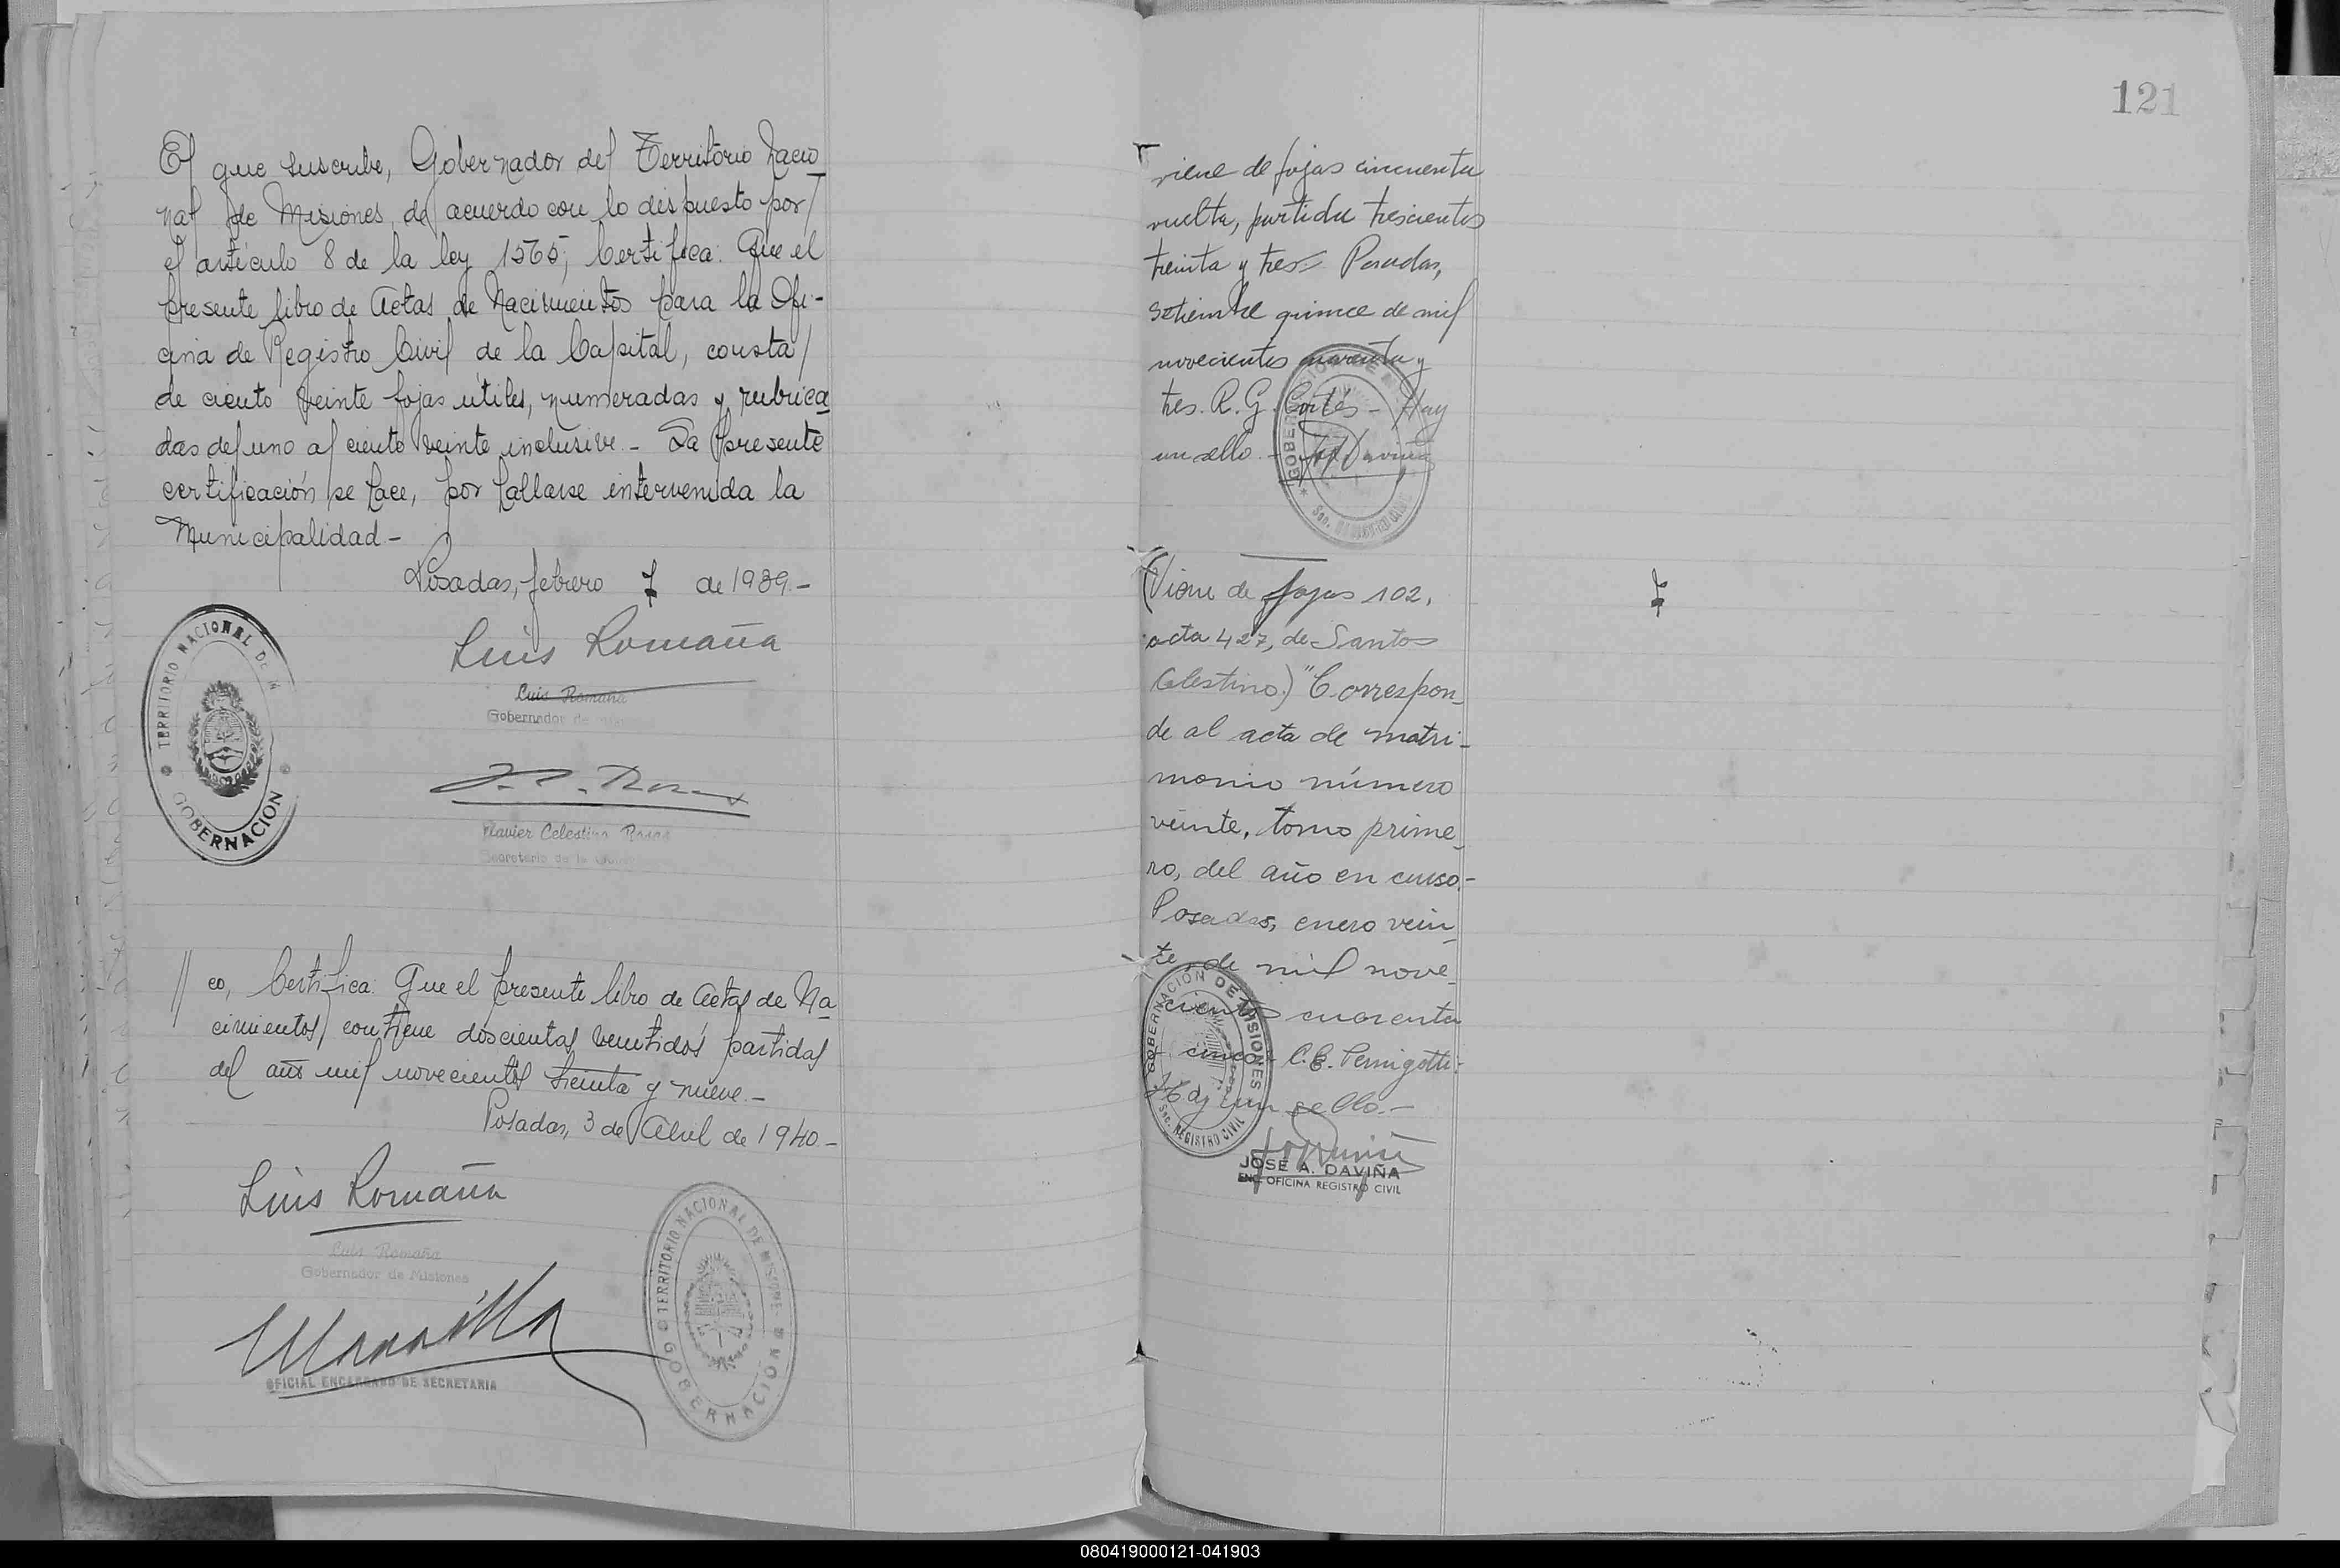 El que suscribe, Gobernador del Territorio Nacio
nal de Misiones, de acuerdo con lo dispuesto por
el artículo 8 de la ley 1565, Certifica: Que el
presente libro de Actas de Nacimientos para la Ofi-
cina de Registro Civil de la Capital, consta
de ciento veinte fojas útiles, numeradas y rubrica
das del uno al ciento veinte inclusive.- La presente
certificación se hace, por hallarse intervenida la
Municipalidad-
Posadas, febrero 7 de 1939.-
TERRITORIO NACIONAL DE
GOBERNACION
Luis Romaña
Luis Romaña
Gobernador de
Javier Celestino
Secretario de la
// co, Certifica: Que el presente libro de Actas de Na
cimientos, contiene doscientas veintidós partidas
del año mil novecientos treinta y nueve.-
Posadas, 3 de Abril de 1940.-
Luis Romaña
Luis Romaña
Gobernador de Misiones
OFICIAL ENCARGADO DE SECRETARIA
TERRITORIO NACIONAL DE MISIONES
GOBERNACION
121
Viene de fojas cincuenta
vuelta, partida trescientos
treinta y tres. Posadas,
setiembre quince de mil
novecientos cuarenta y
tres. R. G. Cortés - Hay
un sello.-
(Viene de fojas 102,
acta 427, de Santos
Celestino.) "Correspon-
de al acta de matri-
monio número
veinte, tomo prime-
ro, del año en curso.-
Posadas, enero vein-
te, de mil nove-
cientos cuarenta
y cinco. C. E. Pernigotti:
Hay un sello.-
GOBERNACIÓN DE MISIONES
Sec. REGISTRO CIVIL
JOSE A. DAVIÑA
ENC. OFICINA REGISTRO CIVIL
080419000121-041903